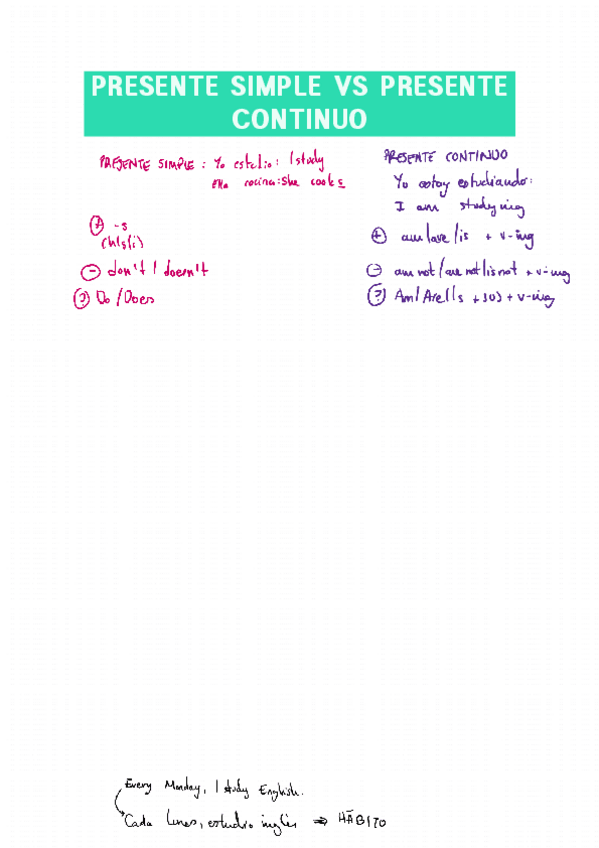 PRESENTE SIMPLE VS PRESENTE
CONTINUO
PRESENTE SIMPLE : Yo estudio : I study
Ella cocina : She cooks
+ -s
(h/s/i)
- don't / doesn't
? Do / Does
PRESENTE CONTINUO
Yo estoy estudiando:
I am studying
+ am/are/is + v-ing
- am not/are not/is not + v-ing
? Am/Are/Is + suj + v-ing
Every Monday, I study English.
Cada lunes, estudio inglés ⇒ HÁBITO